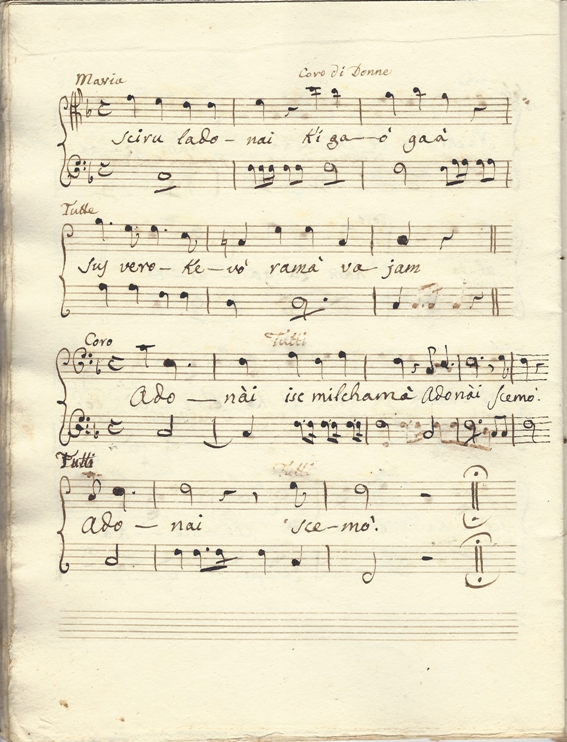 Maria Coro di Donne
sciru lado-nai Ki ga-ò gaà
Tutte
sus vero-Ke-vò ramà va-jam
Coro Tutti
Ado-nài isc milchamà Adonài scemò.
Tutti Tutti
Ado-nai sce-mò.